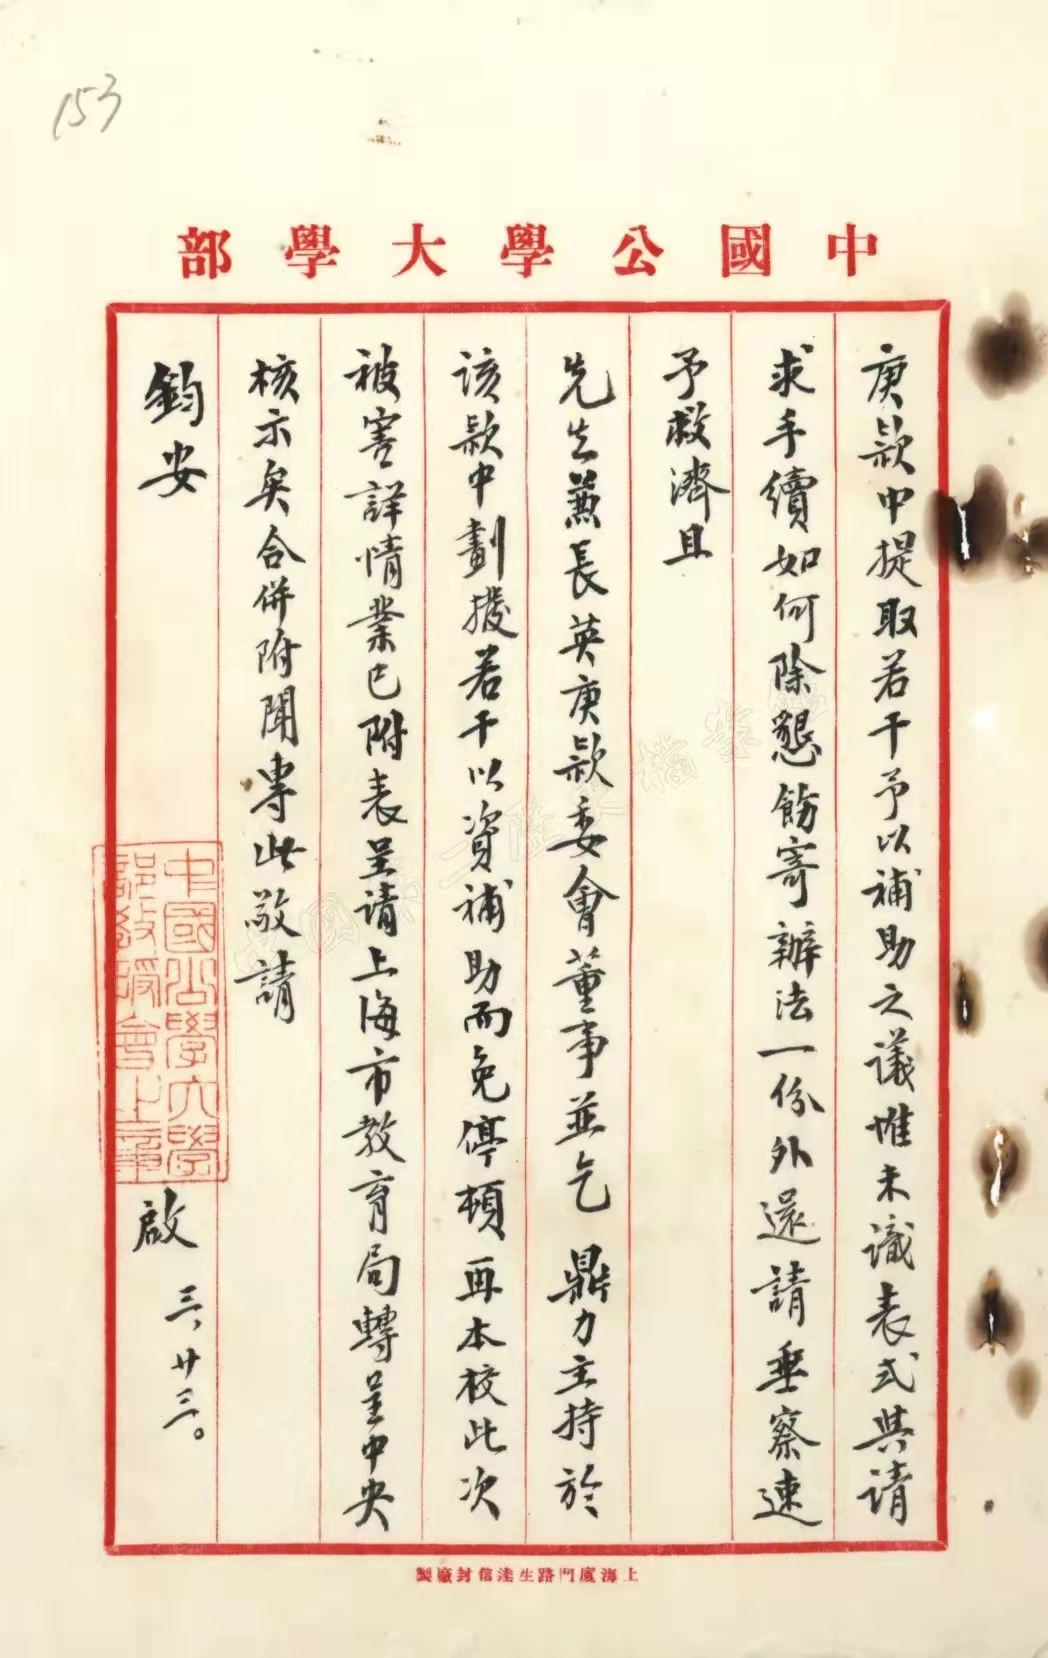 153
中國公學大學部
庚款中提取若干予以補助之議惟未識表式與請
求手續如何除懇飭寄辦法一份外還請垂察速
予救濟且
先生兼長英庚款委會董事並乞鼎力主持於
該款中劃撥若干以資補助而免停頓再本校此次
被害詳情業已附表呈請上海市教育局轉呈中央
核示矣合併附聞專此敬請
鈞安
中國公學大學
部教授會之章
啟
三、廿三。
上海廈門路生達信封廠製
中國第二歷史檔案館